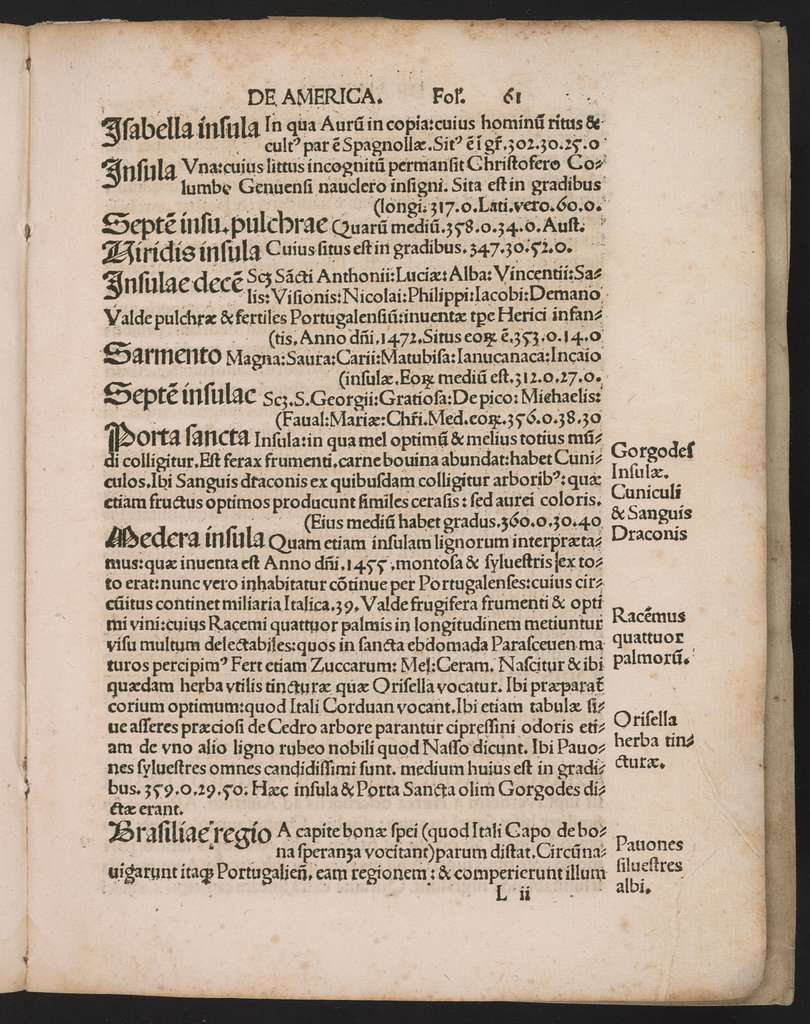 DE AMERICA. Fol. 61
Isabella insula In qua Aurū in copia:cuius hominū ritus &
cultꝰ par ē Spagnollæ.Sitꝰ ē ī gř.302.30.25.0
Insula Vna:cuius littus incognitū permansit Christofero Co⸗
lumbo Genuensi nauclero insigni. Sita est in gradibus
(longi.317.0.Lati.vero.60.0.
Septē insu.pulchrae Quarū mediū.358.0.34.0.Aust.
Viridis insula Cuius situs est in gradibus.347.30.52.0.
Insulae decē Scꝫ Sācti Anthonii:Luciæ:Alba:Vincentii:Sa⸗
lis:Visionis:Nicolai:Philippi:Iacobi:Demano
Valde pulchræ & fertiles Portugalensiū:inuentæ tpe Herici infan⸗
(tis.Anno dñi.1472.Situs eoꝝ ē.353.0.14.0
Sarmento Magna:Saura:Carii:Matubisa:Ianucanaca:Incaio
(insulæ.Eoꝝ mediū est.312.0.27.0.
Septē insulae Scꝫ.S.Georgii:Gratiosa:De pico:Michaelis:
(Faual:Mariæ:Chři.Med.eoꝝ.356.0.38.30
Porta sancta Insula:in qua mel optimū & melius totius mū⸗
di colligitur.Est ferax frumenti.carne bouina abundat:habet Cuni⸗
culos.Ibi Sanguis draconis ex quibusdam colligitur arboribꝰ:quæ
etiam fructus optimos producunt similes cerasis: sed aurei coloris.
(Eius mediū habet gradus.360.0.30.40
Medera insula Quam etiam insulam lignorum interpræta⸗
mus:quæ inuenta est Anno dñi.1455.montosa & syluestris ex to⸗
to erat:nunc vero inhabitatur cōtinue per Portugalenses:cuius cir⸗
cūitus continet miliaria Italica.39.Valde frugifera frumenti & opti
mi vini:cuius Racemi quattuor palmis in longitudinem metiuntur
visu multum delectabiles:quos in sancta ebdomada Parasceuen ma
turos percipimꝰ Fert etiam Zuccarum: Mel:Ceram. Nascitur & ibi
quædam herba vtilis tincturæ quæ Orisella vocatur. Ibi præparaṫ
corium optimum:quod Itali Corduan vocant.Ibi etiam tabulæ si⸗
ue asseres præciosi de Cedro arbore parantur cipressini odoris eti⸗
am de vno alio ligno rubeo nobili quod Nasso dicunt. Ibi Pauo⸗
nes syluestres omnes candidissimi sunt. medium huius est in gradi⸗
bus.359.0.29.50. Hæc insula & Porta Sancta olim Gorgodes di⸗
ctæ erant.
Brasiliae regio A capite bonæ spei (quod Itali Capo de bo⸗
na speranza vocitant)parum distat.Circūna⸗
uigarunt itaqꝫ Portugalieñ. eam regionem: & comperierunt illum
L ii
Gorgodes
Insulæ.
Cuniculi
& Sanguis
Draconis
Racēmus
quattuor
palmorū.
Orisella
herba tin⸗
cturæ.
Pauones
siluestres
albi.